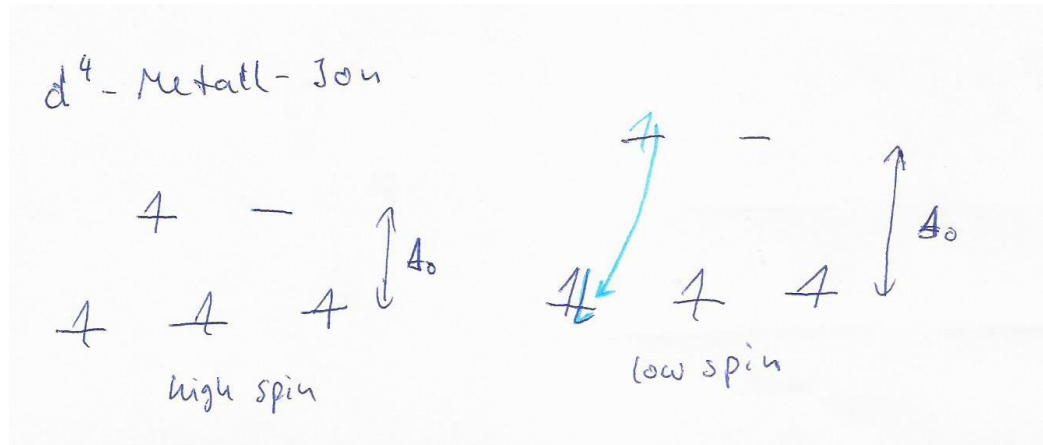 d⁴-Metall-Ion
Δ₀
high spin
Δ₀
low spin